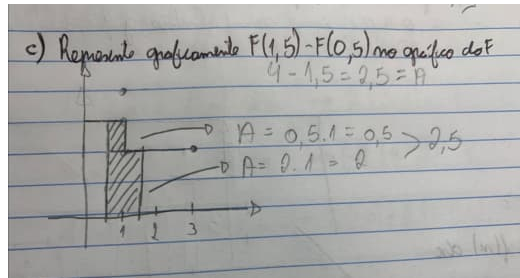 c) Represente graficamente F(1,5) - F(0,5) no gráfico do F
4 - 1,5 = 2,5 = A
A = 0,5 . 1 = 0,5
A = 2 . 1 = 2
2,5
1 2 3